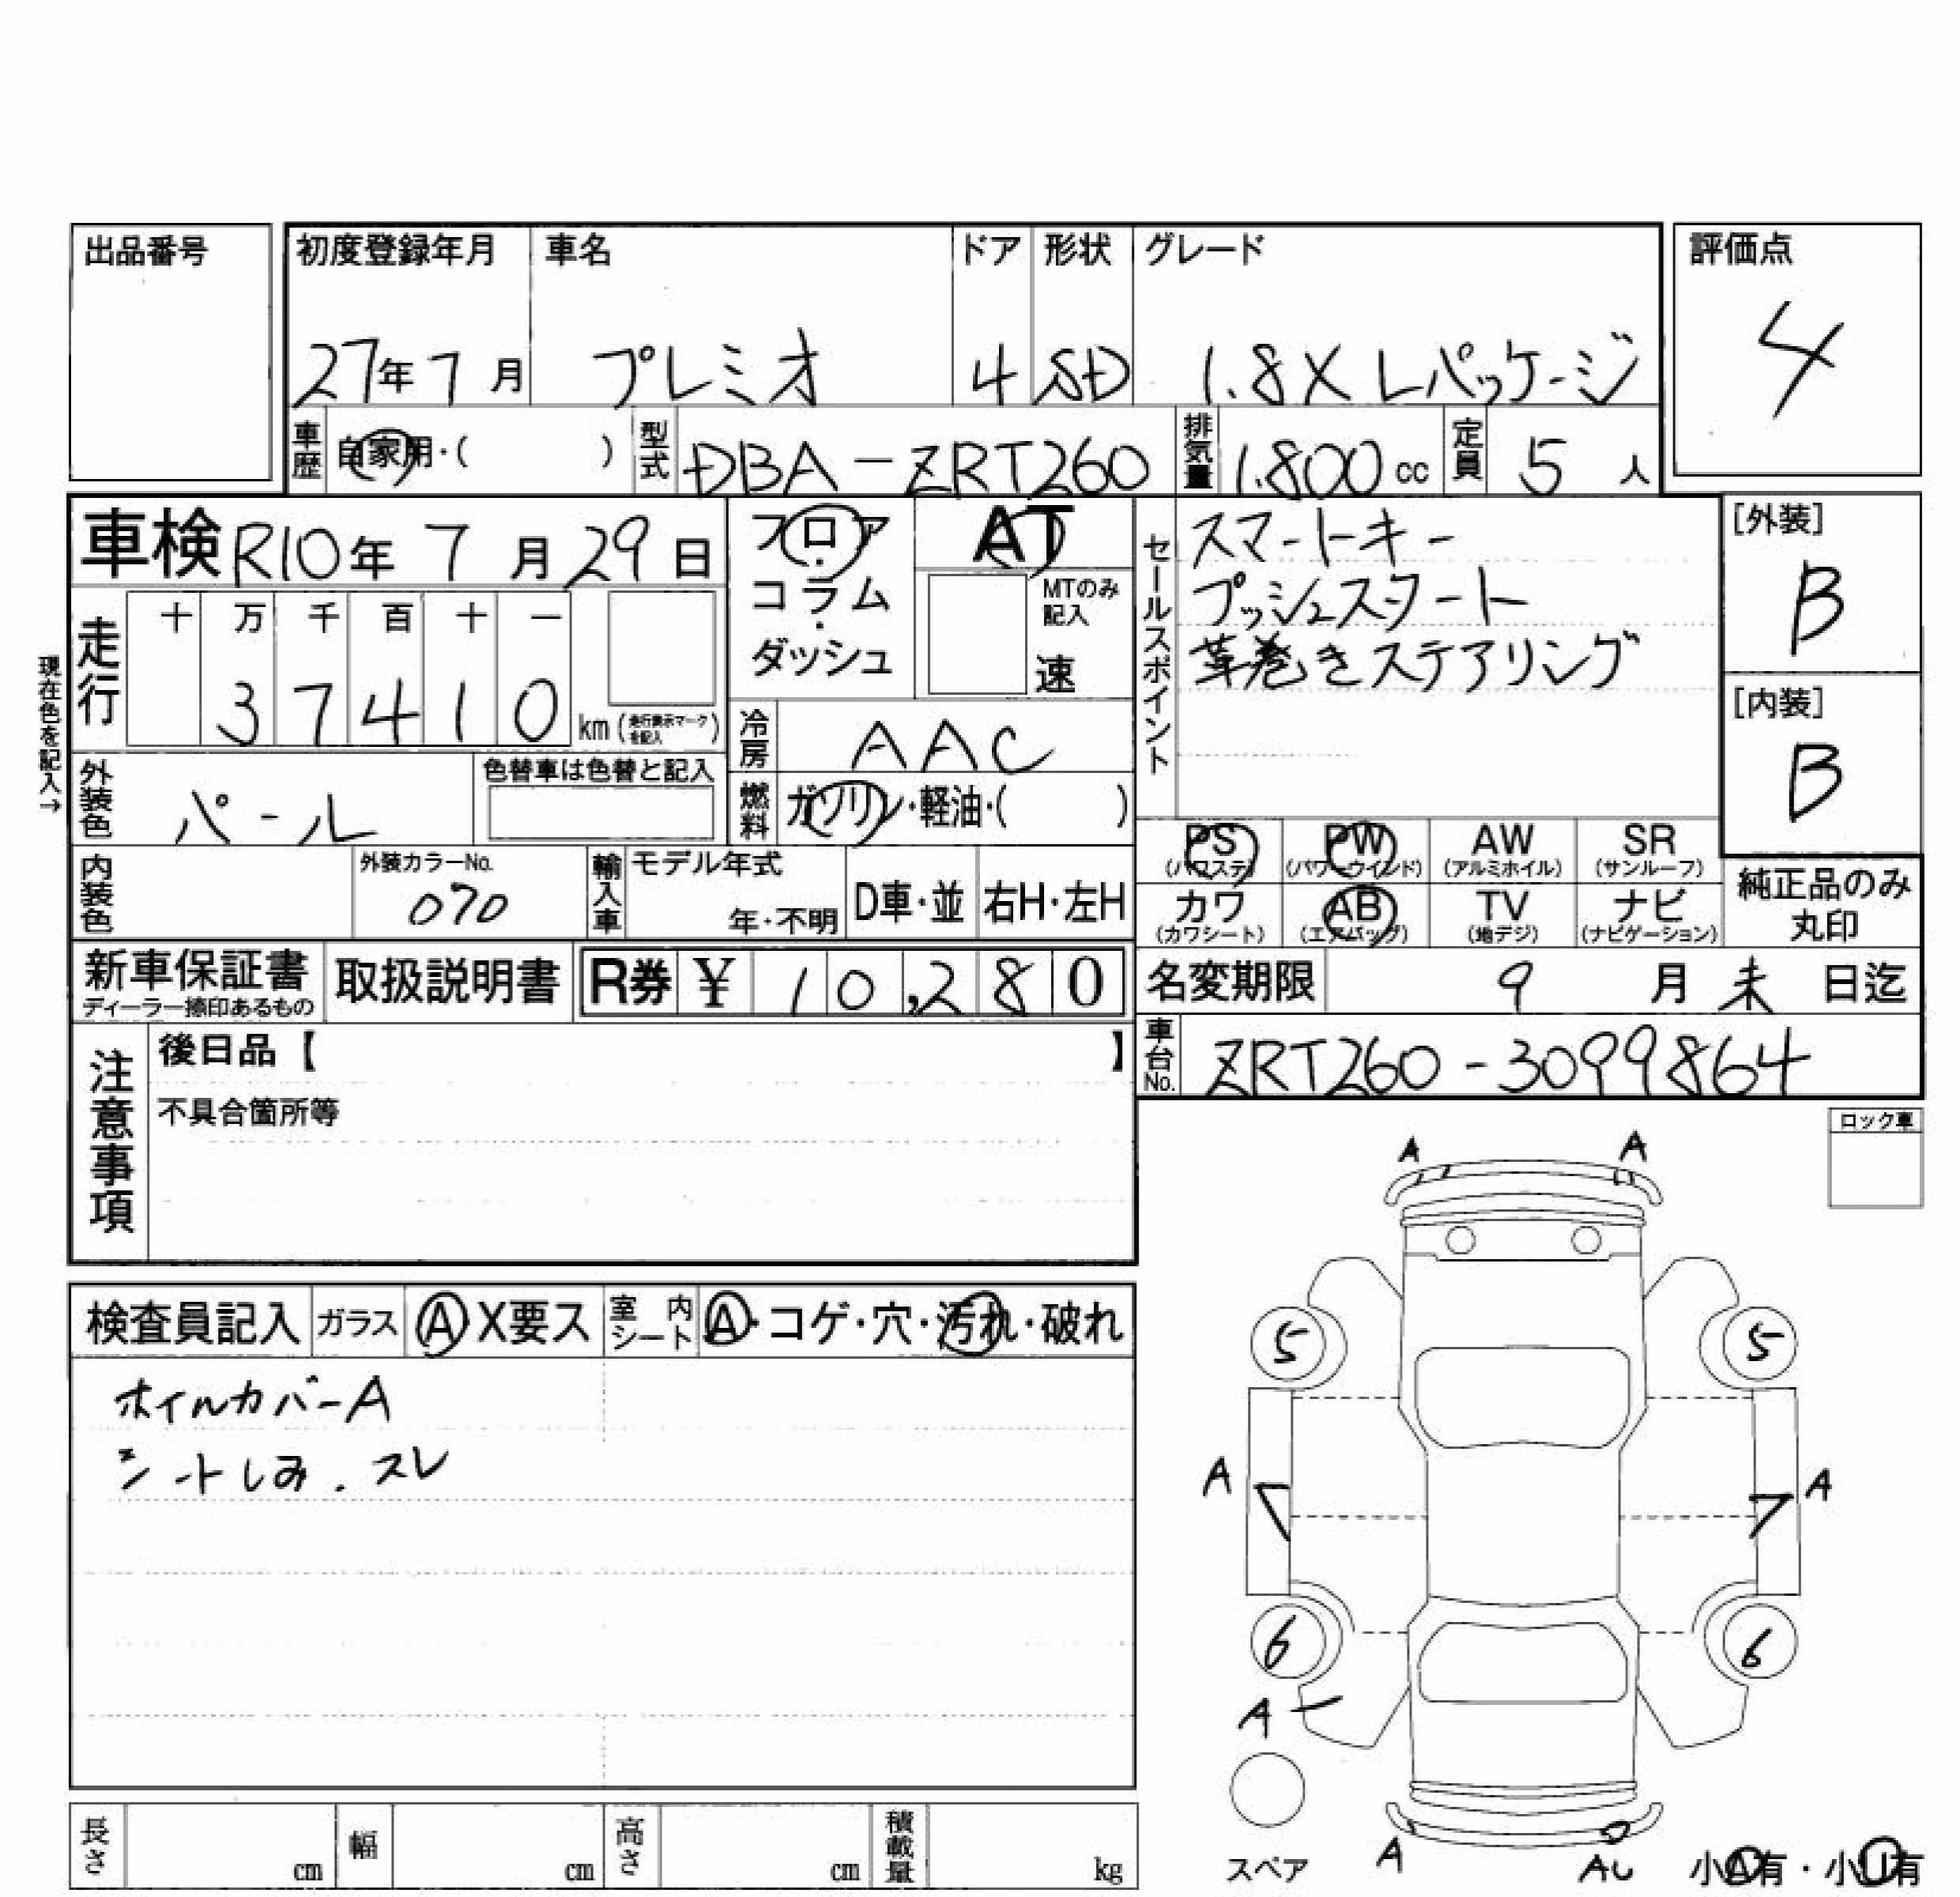 出品番号
初度登録年月 車名 ドア 形状 グレード
27年7月 プレミオ 4 SD 1.8X Lパッケージ
評価点
4
車歴 自家用・( ) 型式 DBA-ZRT260 排気量 1.800cc 定員 5人
車検 R10年7月29日
フロア・コラム・ダッシュ
AT
MTのみ記入
速
セールスポイント
スマートキー
プッシュスタート
革巻きステアリング
[外装]
B
[内装]
B
現在色を記入→
走行 十 万 千 百 十 一
37410 km (走行表示マーク を記入)
冷房 AAC
外装色 パール 色替車は色替と記入
燃料 ガソリン・軽油・( )
PS (パワステ) PW (パワーウインド) AW (アルミホイル) SR (サンルーフ)
カワ (カワシート) AB (エアバッグ) TV (地デジ) ナビ (ナビゲーション)
純正品のみ
丸印
内装色 外装カラーNo. 070 輸入車 モデル年式 年・不明 D車・並 右H・左H
新車保証書 ディーラー捺印あるもの 取扱説明書 R券 ¥ 10,280
名変期限 9月末日迄
車台No. ZRT260-3099864
注意事項
後日品【 】
不具合箇所等
ロック車
検査員記入 ガラス A X要ス 室内シート A・コゲ・穴・汚れ・破れ
ホイルカバーA
シートしみ.スレ
A A
5 5
A A
6 6
A
スペア A AU 小A有・小U有
長さ cm 幅 cm 高さ cm 積載量 kg